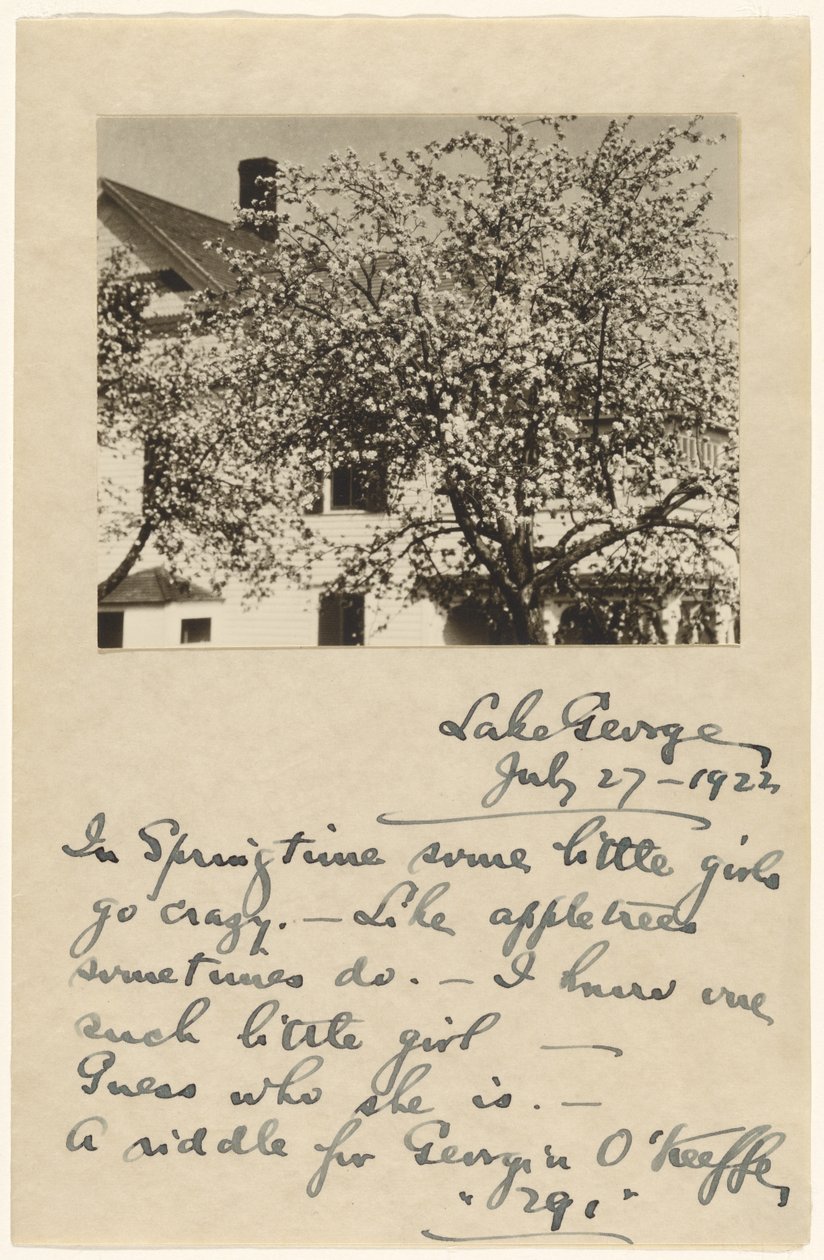 Lake George,
July 27 – 1922
In Springtime some little girls
go crazy. – Like appletrees
sometimes do. – I know one
such little girl —
Guess who she is. –
A riddle for Georgia O'Keeffe,
"291"